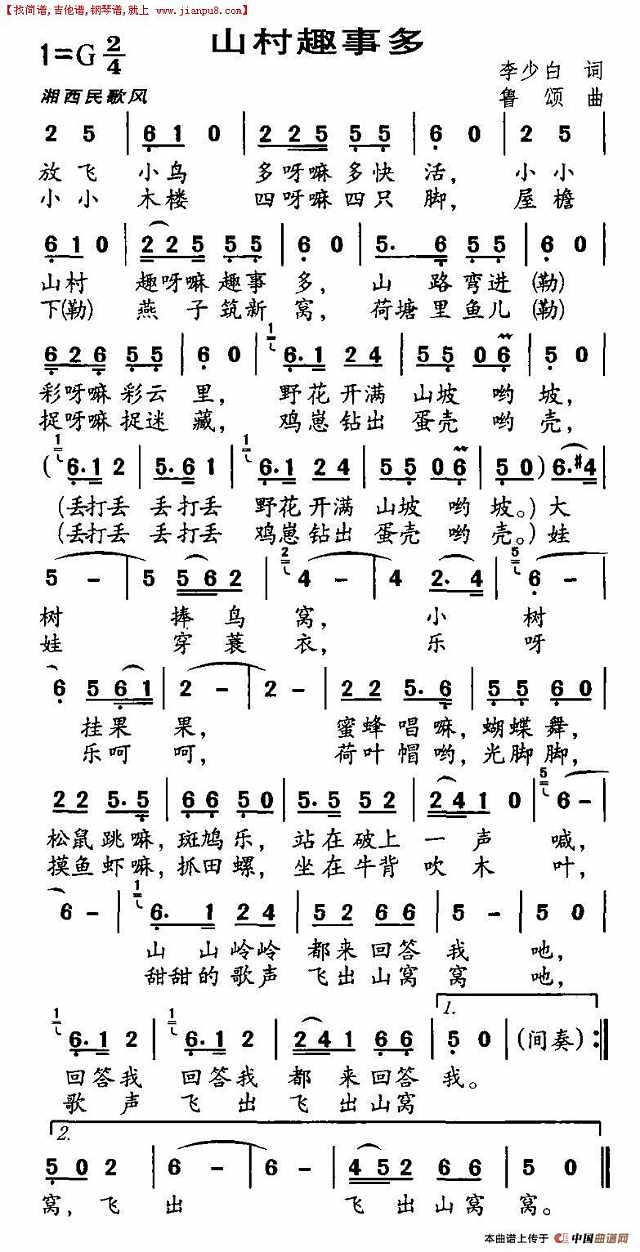 【找简谱,吉他谱,钢琴谱,就上 www.jianpu8.com】
山村趣事多
1=G 2/4
李少白 词
湘西民歌风
鲁 颂 曲
2 5 | 6 1 0 | 2 2 5 5 5 | 6 0 | 2 5 |
放飞 小鸟 多呀嘛多快 活, 小小
小小 木楼 四呀嘛四只 脚, 屋檐
6 1 0 | 2 2 5 5 5 | 6 0 | 5. 6 | 5 0 |
山村 趣呀嘛趣事 多, 山 路弯进(勒)
下(勒) 燕 子筑新 窝, 荷塘里鱼儿(勒)
6 2 6 5 5 | 5 0 | 6.1 2 4 | 5 5 0 6 | 5 0 |
彩呀嘛彩云 里, 野花开满 山坡 哟 坡,
捉呀嘛捉迷 藏, 鸡崽钻出 蛋壳 哟 壳,
(6.1 2 | 5.6 1 | 6.1 2 4 | 5 5 0 6 | 5 0) 6.#4 |
(丢打丢 丢打丢 野花开满 山坡 哟 坡。)大
(丢打丢 丢打丢 鸡崽钻出 蛋壳 哟 壳。)娃
5 - | 5 5 6 2 | 4 - | 4 2.4 | 6 - |
树 捧鸟 窝, 小 树
娃 穿蓑 衣, 乐 呀
6 5 6 1 | 2 - | 2 - | 2 2 5.6 | 5 5 6 0 |
挂果 果, 蜜蜂唱嘛,蝴蝶舞,
乐呵 呵, 荷叶帽哟,光脚脚,
2 2 5.5 | 6 6 5 0 | 5.5 5 2 | 2 4 1 0 | 6 - |
松鼠跳嘛,斑鸠乐, 站在破上 一声 喊,
摸鱼虾嘛,抓田螺, 坐在牛背 吹木 叶,
6 - | 6. 1 2 4 | 5 2 6 6 | 5 - | 5 0 |
山 山岭岭 都来回答 我 吔,
甜甜的歌声 飞出山窝 窝 吔,
1.
6.1 2 | 6.1 2 | 2 4 1 6 6 | 5 0 | (间奏) :||
回答我 回答我 都 来回答 我。
歌 声 飞 出 飞 出山窝
2.
5 0 2 | 6 - | 6 - | 4 5 2 6 6 | 5 0 ||
窝, 飞 出 飞 出山窝 窝。
本曲谱上传于 中国曲谱网